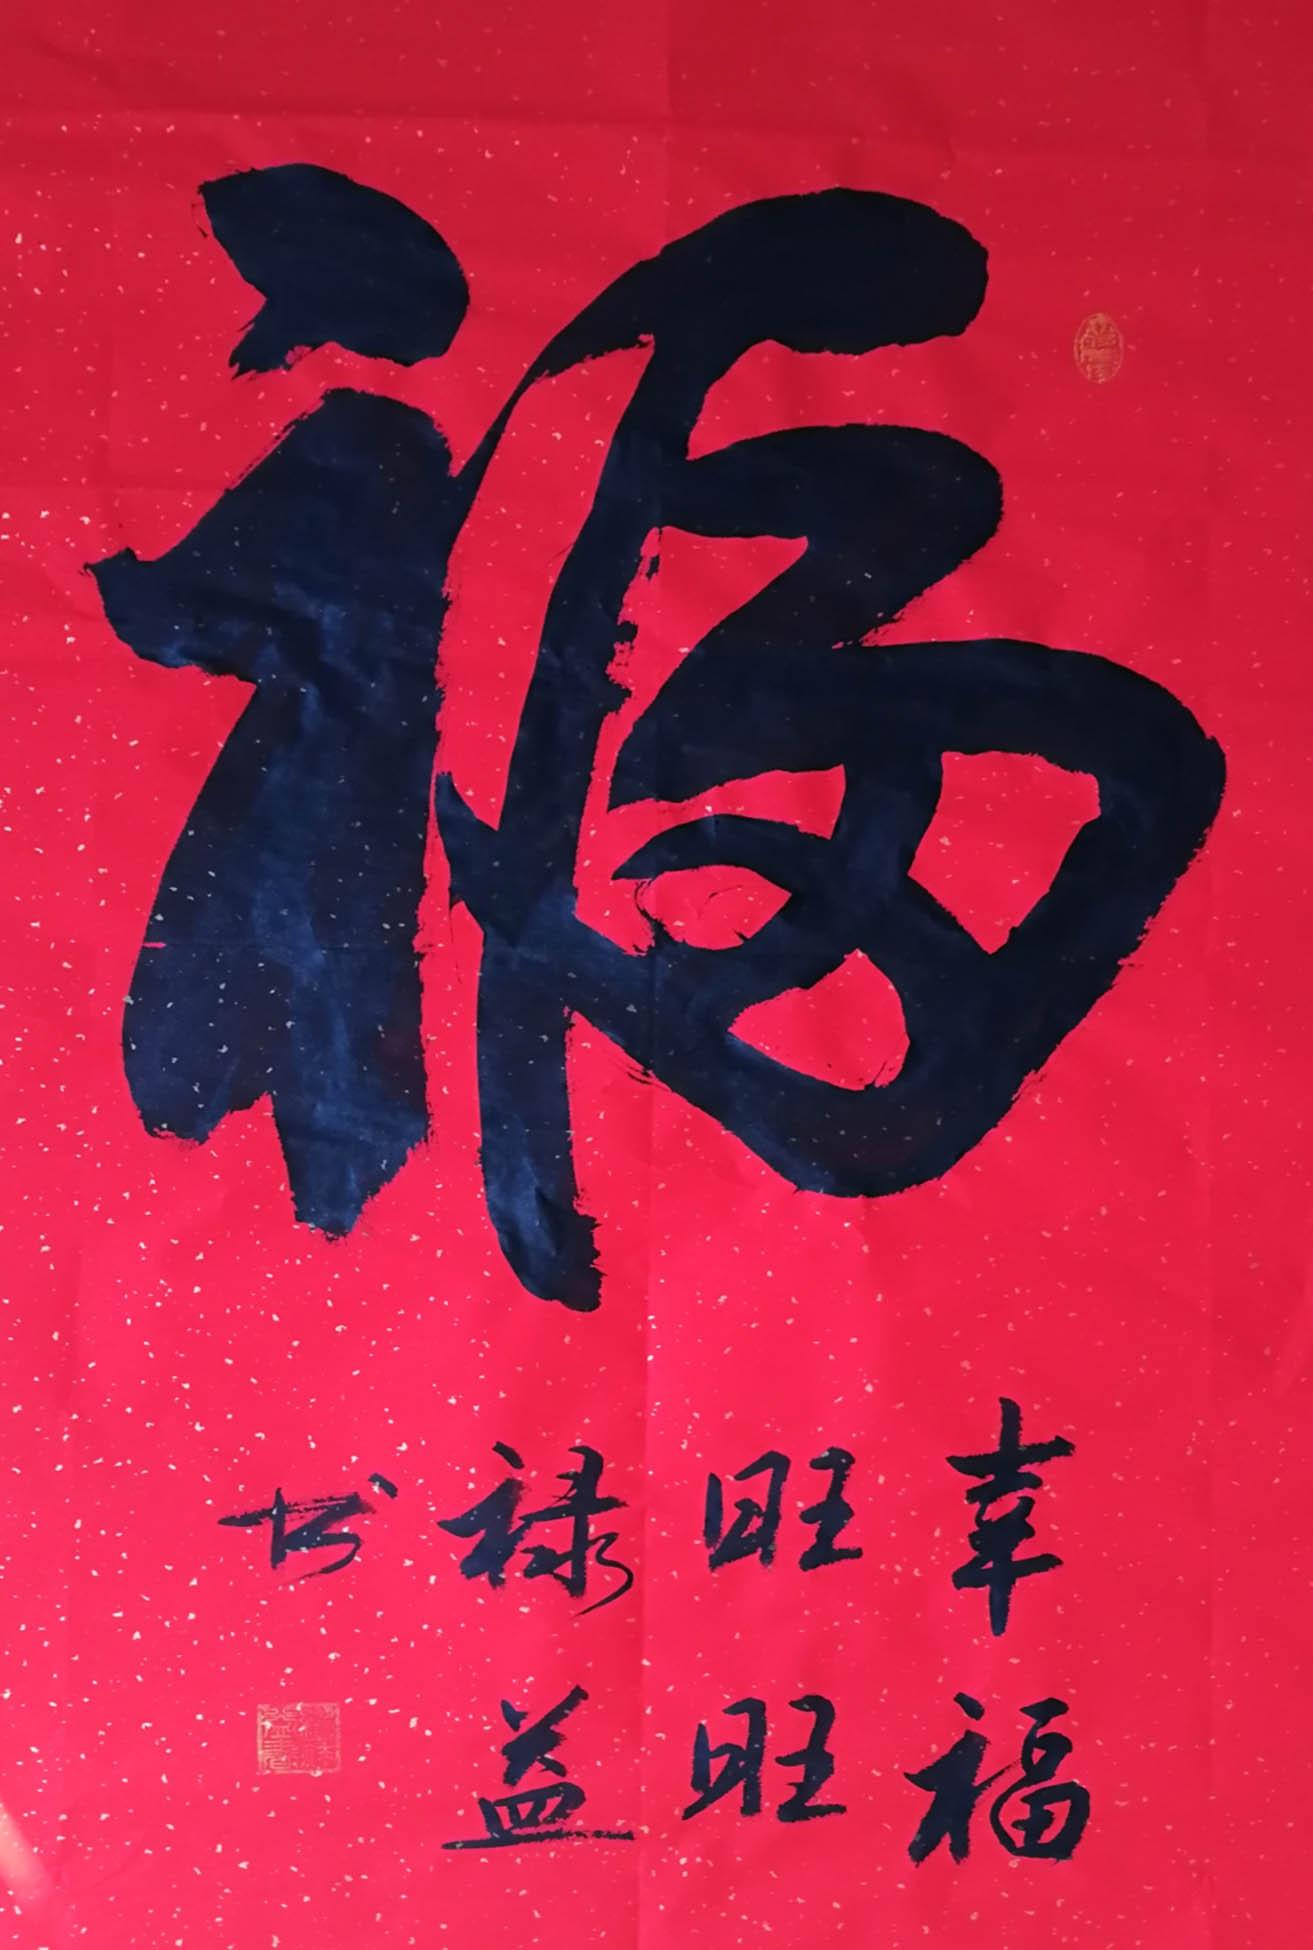 福
幸福
旺旺
禄益
书